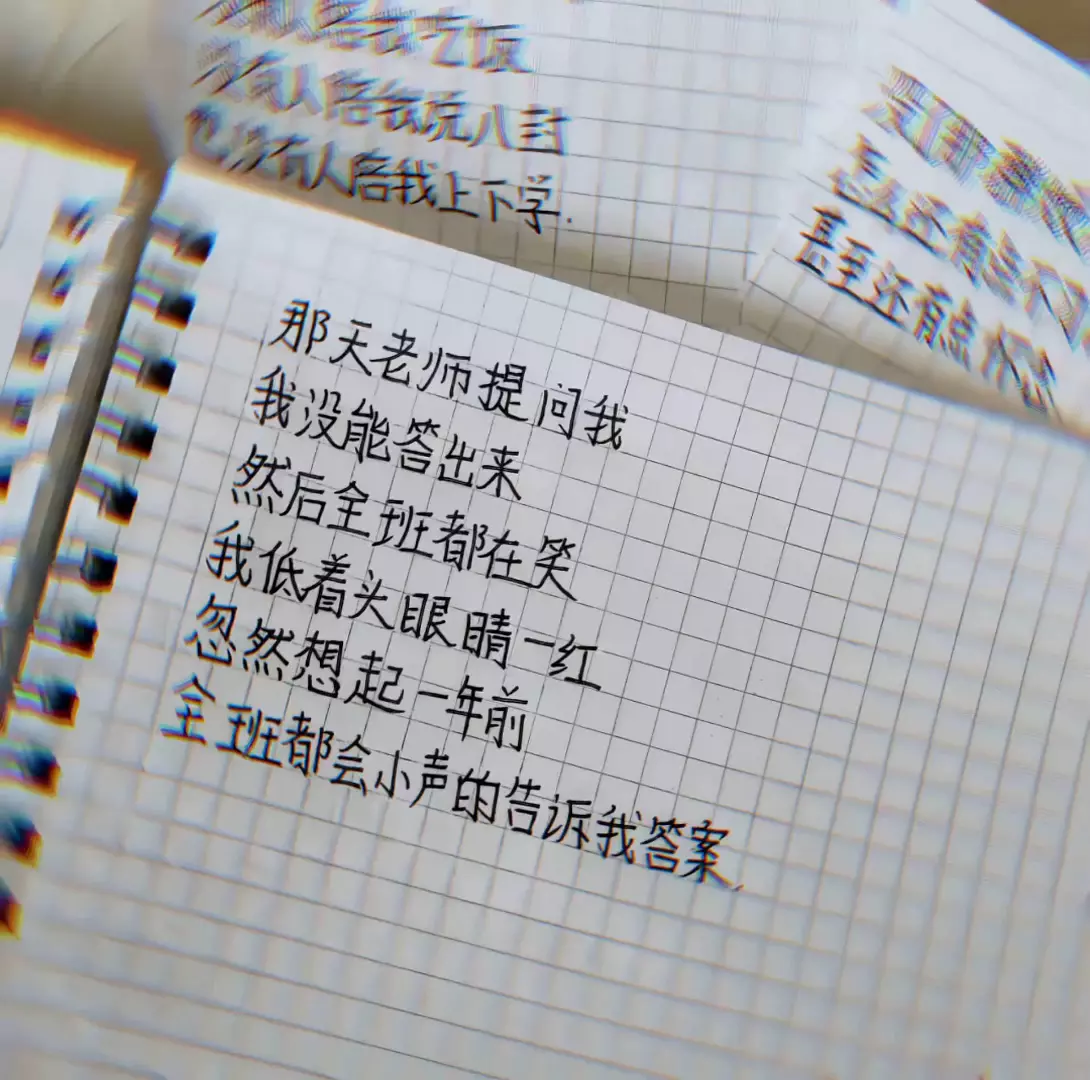 没有人陪我说八卦
也没有人陪我上下学.
甚至还有点
甚至还有点
那天老师提问我
我没能答出来
然后全班都在笑
我低着头眼睛一红
忽然想起一年前
全班都会小声的告诉我答案.